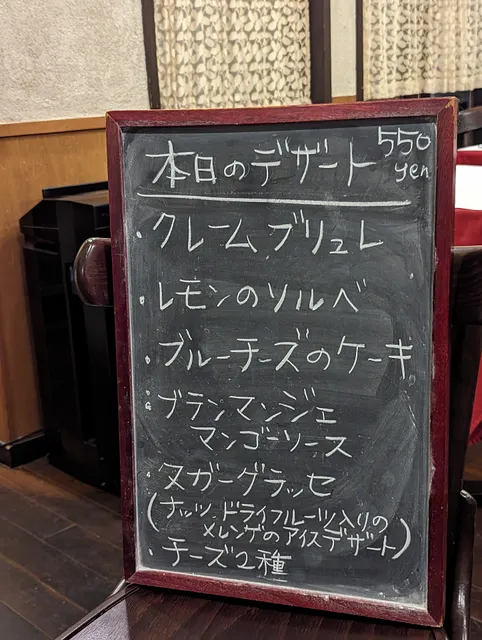 本日のデザート 550 yen
・クレームブリュレ
・レモンのソルベ
・ブルーチーズのケーキ
・ブランマンジェ
マンゴーソース
・ヌガーグラッセ
(ナッツ、ドライフルーツ入りの
メレンゲのアイスデザート)
・チーズ2種